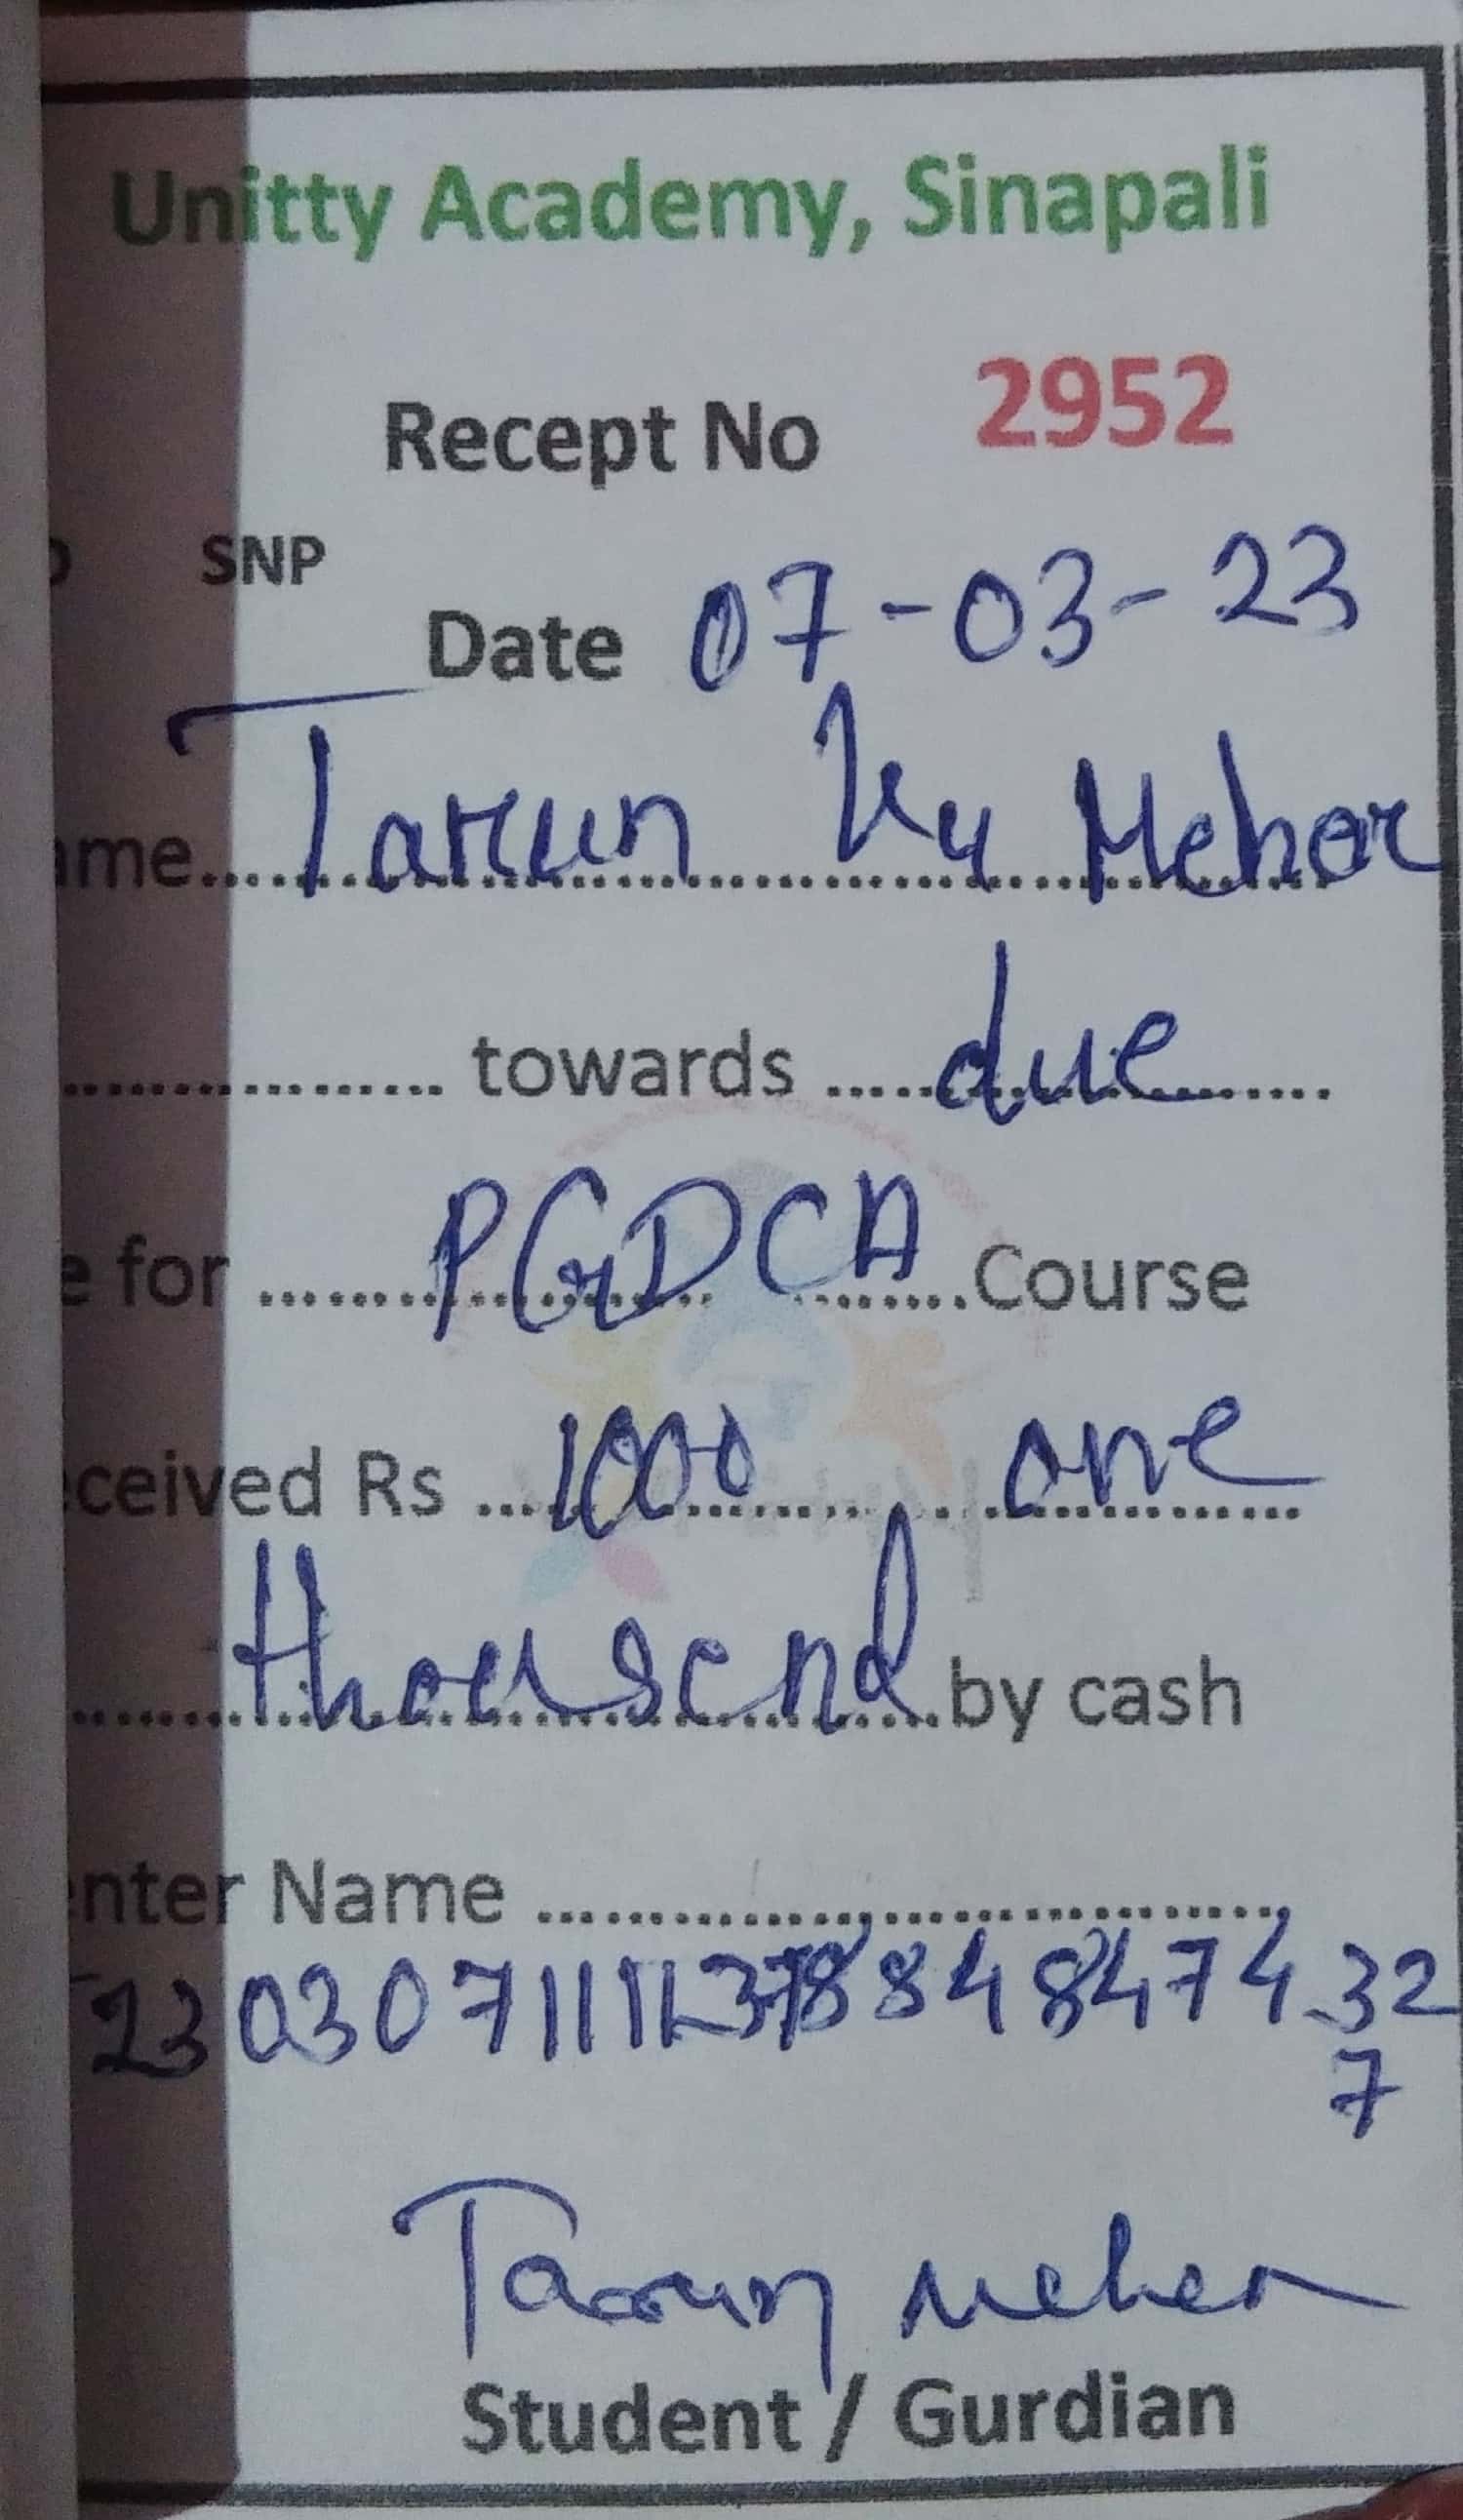 Unitty Academy, Sinapali
Recept No 2952
SNP
Date 07-03-23
ame.... Tarun Ku Meher
................ towards ..... due
e for ........ PGDCA ........Course
ceived Rs .... 1000 ........ one
........ thousand by cash
nter Name ................................
32
7
Tarun Meher
Student / Gurdian